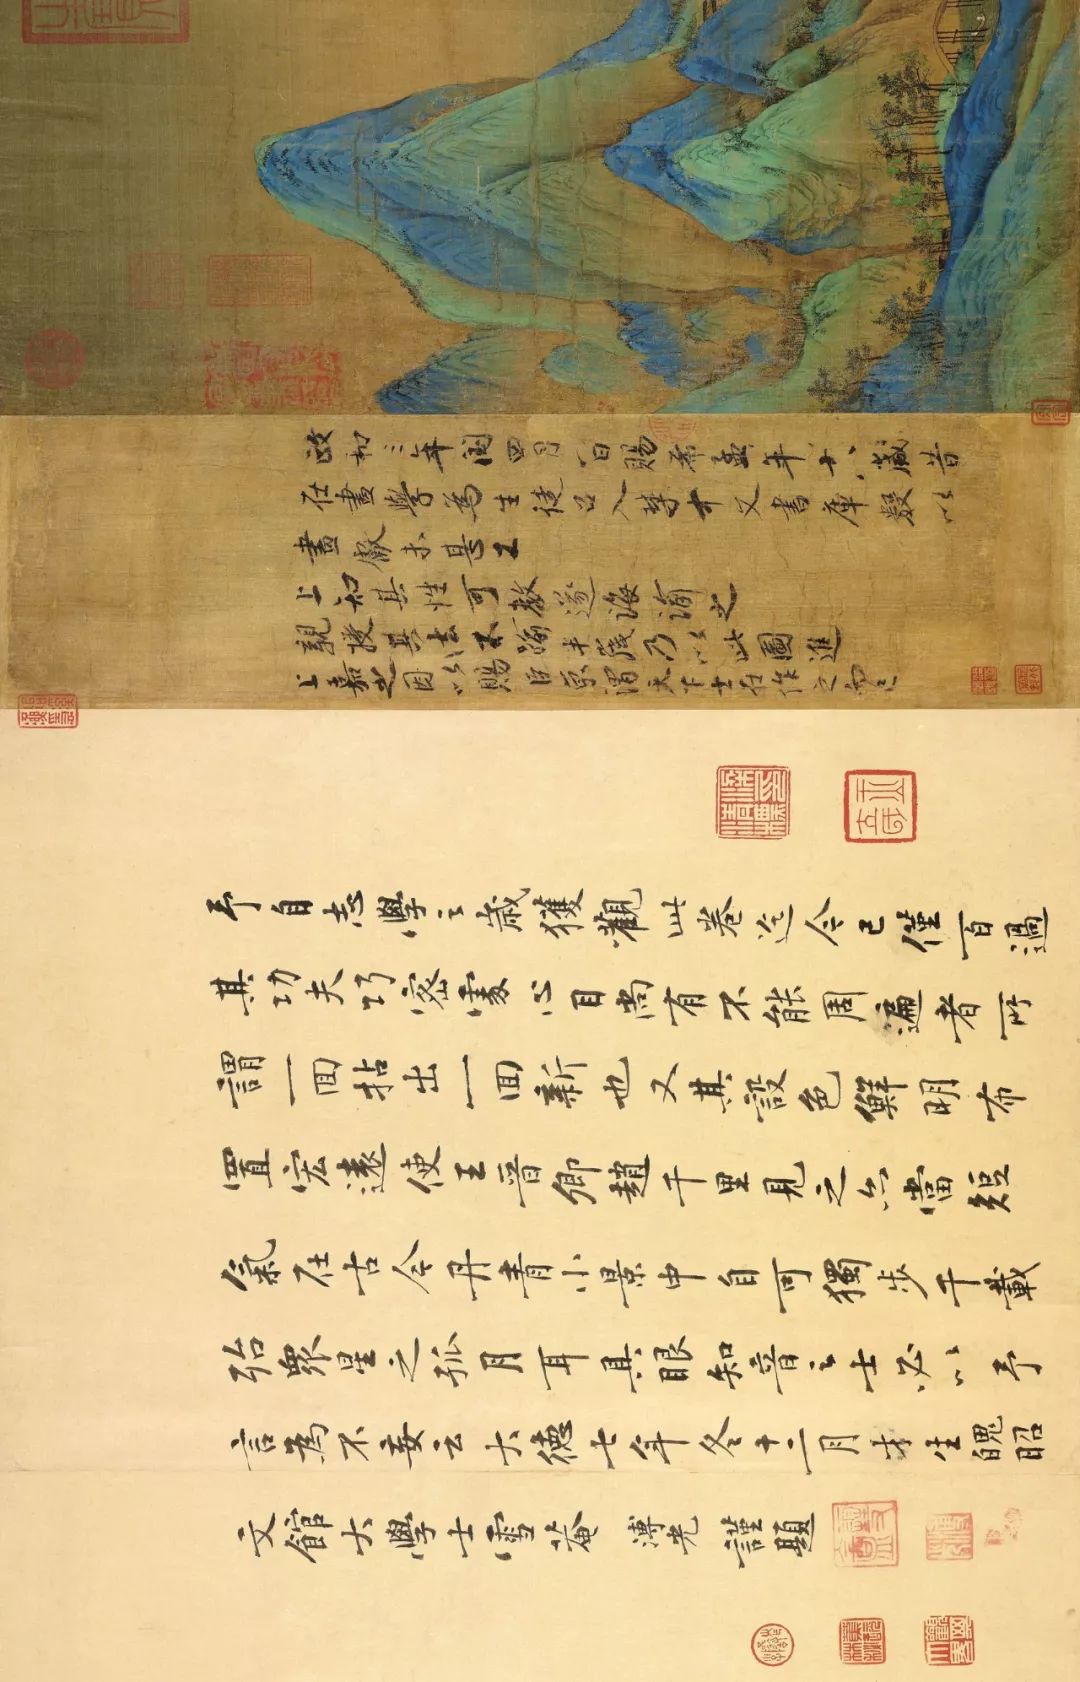 政和三年閏四月八日賜希孟年十八歲昔
在畫學為生徒召入禁中文書庫數以
畫獻未甚工
上知其性可教遂誨諭之
親授其法不踰半歲乃以此圖進
上嘉之因以賜臣京謂天下士在作之而已
予自志學之歲獲觀此卷迄今已僅百過
其功夫巧密處心目尚有不能周遍者所
謂一回拈出一回新也又其設色鮮明布
置宏遠使王晉卿趙千里見之亦當短
氣在古今丹青小景中自可獨步千載
殆衆星之孤月耳具眼知音之士必以予
言為不妄云大德七年冬十二月才生魄昭
文館大學士雪菴 溥光 謹題